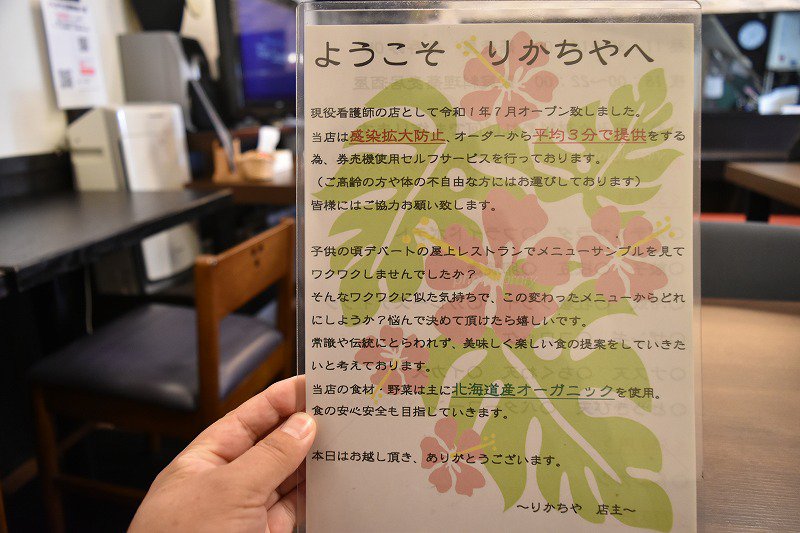 ようこそ りかちやへ
現役看護師の店として令和1年7月オープン致しました。
当店は感染拡大防止、オーダーから平均3分で提供をする
為、券売機使用セルフサービスを行っております。
（ご高齢の方や体の不自由な方にはお運びしております）
皆様にはご協力お願い致します。
子供の頃デパートの屋上レストランでメニューサンプルを見て
ワクワクしませんでしたか？
そんなワクワクに似た気持ちで、この変わったメニューからどれ
にしようか？悩んで決めて頂けたら嬉しいです。
常識や伝統にとらわれず、美味しく楽しい食の提案をしていきた
いと考えております。
当店の食材・野菜は主に北海道産オーガニックを使用。
食の安心安全も目指していきます。
本日はお越し頂き、ありがとうございます。
～りかちや 店主～